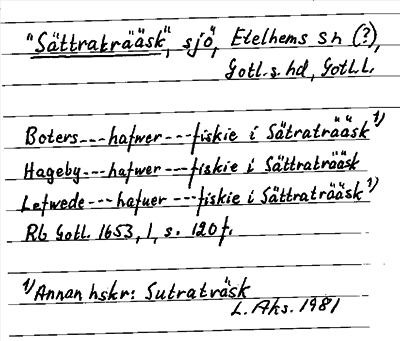 "Sättraträäsk", sjö, Etelhems sn (?),
Gotl. s. hd, Gotl. L.
Boters---hafwer---fiskie i Sätraträäsk 1)
Hageby---hafwer---fiskie i Sättraträäsk
Lefwede---hafuer---fiskie i Sättraträäsk 1)
Rb Gotl. 1653, 1, s. 120 f.
1) Annan hskr: Sutraträsk
L. Aks. 1981